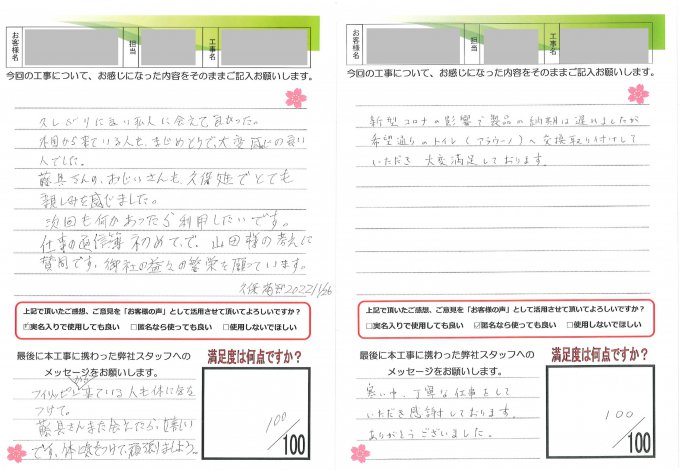 お客様名
担当
工事名
今回の工事について、お感じになった内容をそのままご記入お願いします。
久しぶりに良い職人に会えて良かった。
外国から来ている人も、まじめそうで、大変感じの良い
人でした。
藤具さんの、おじいさんも、久保姓でとても
親しみを感じました。
次回も何かあったら利用したいです。
仕事の通信簿初めてで、山田様の考えに
賛同です。御社の益々の繁栄を願っています。
2022/1/26
上記で頂いたご感想、ご意見を「お客様の声」として活用させて頂いてよろしいですか?
☑実名入りで使用しても良い □匿名なら使っても良い □使用しないでほしい
最後に本工事に携わった弊社スタッフへの
メッセージをお願いします。
フィリピンから来ている人も体に気を
つけて。
藤具さんまた会えたら、嬉しい
です、体に気をつけて頑張りましょう。
満足度は何点ですか?
100
/100
お客様名
担当
工事名
今回の工事について、お感じになった内容をそのままご記入お願いします。
新型コロナの影響で製品の納期は遅れましたが
希望通りのトイレ(アラウーノ)へ交換取り付けして
いただき 大変満足しております。
上記で頂いたご感想、ご意見を「お客様の声」として活用させて頂いてよろしいですか?
□実名入りで使用しても良い ☑匿名なら使っても良い □使用しないでほしい
最後に本工事に携わった弊社スタッフへの
メッセージをお願いします。
寒い中、丁寧な仕事をして
いただき感謝しております。
ありがとうございました。
満足度は何点ですか?
100
/100